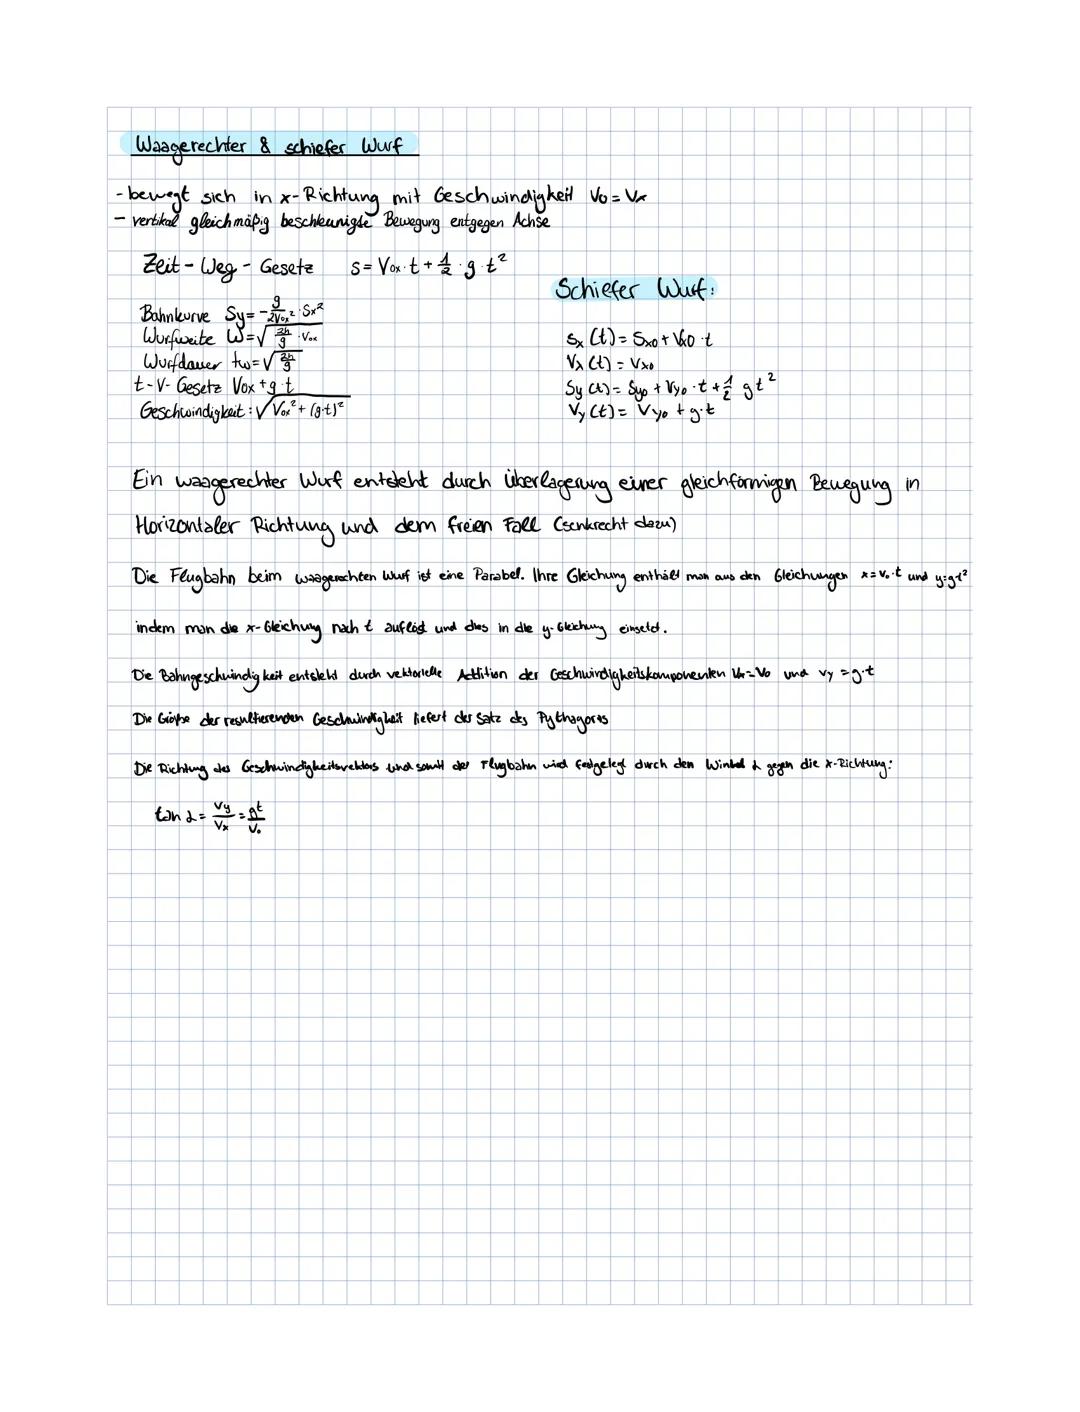 Waagerechter & schiefer Wurf
- bewegt sich in x-Richtung mit Geschwindigkeit V₀ = Vₓ
- vertikal gleichmäßig beschleunigte Bewegung entgegen Achse
Zeit - Weg - Gesetz s = V₀ₓ · t + 1/2 · g · t²
Bahnkurve Sy = - g/2V₀ₓ² · Sx²
Wurfweite W = √2h/g · V₀ₓ
Wurfdauer tw = √2h/g
t-V-Gesetz V₀ₓ + g · t
Geschwindigkeit: √V₀ₓ² + (g·t)²
Schiefer Wurf:
Sx (t) = Sx0 + Vx0 · t
Vx (t) = Vx0
Sy (t) = Sy0 + Vy0 · t + 1/2 g t²
Vy (t) = Vy0 + g · t
Ein waagerechter Wurf entsteht durch überlagerung einer gleichförmigen Bewegung in
Horizontaler Richtung und dem freien Fall (senkrecht dazu)
Die Flugbahn beim waagerechten Wurf ist eine Parabel. Ihre Gleichung enthält man aus den Gleichungen x = v₀ · t und y = g · t²
indem man die x-Gleichung nach t auflöst und dies in die y-Gleichung einsetzt.
Die Bahngeschwindigkeit entsteht durch vektorielle Addition der Geschwindigkeitskomponenten Vx = V₀ und vy = g · t
Die Größe der resultierenden Geschwindigkeit liefert der Satz des Pythagoras
Die Richtung des Geschwindigkeitsvektors und somit der Flugbahn wird festgelegt durch den Winkel α gegen die x-Richtung:
tan α = Vy/Vx = gt/V₀